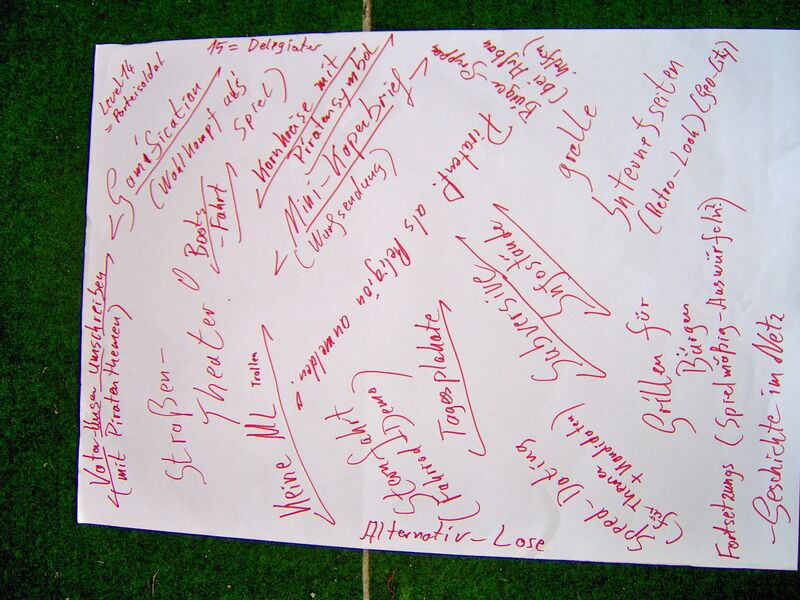 15 = Delegierter
Level 14
= Parteisoldat
Gamification
(Wahlkampf als
Spiel)
Kornkreise mit
Piratensymbol
Mini-Kaperbrief
(Wurfsendung)
Bürger-Gruppen
(bei Aufbau
helfen)
grelle
Internetseiten
(Retro-Look) (Geo-City)
Boots
-Fahrt
Piratenp.
als Religion anmelden
(mit Piratenthemen)
umschreiben
Straßen-
Theater
Keine ML
Trollen
Sternfahrt
(Fahrrad Demo)
Tagesplakate
Subversive
Infostände
Grillen für
Bürger
Speed-Dating
(für Thema
+ Kandidaten)
Fortsetzungs (Spielmäßig-Auswürfeln?)
-Geschichte im Netz
Alternativ-Lose